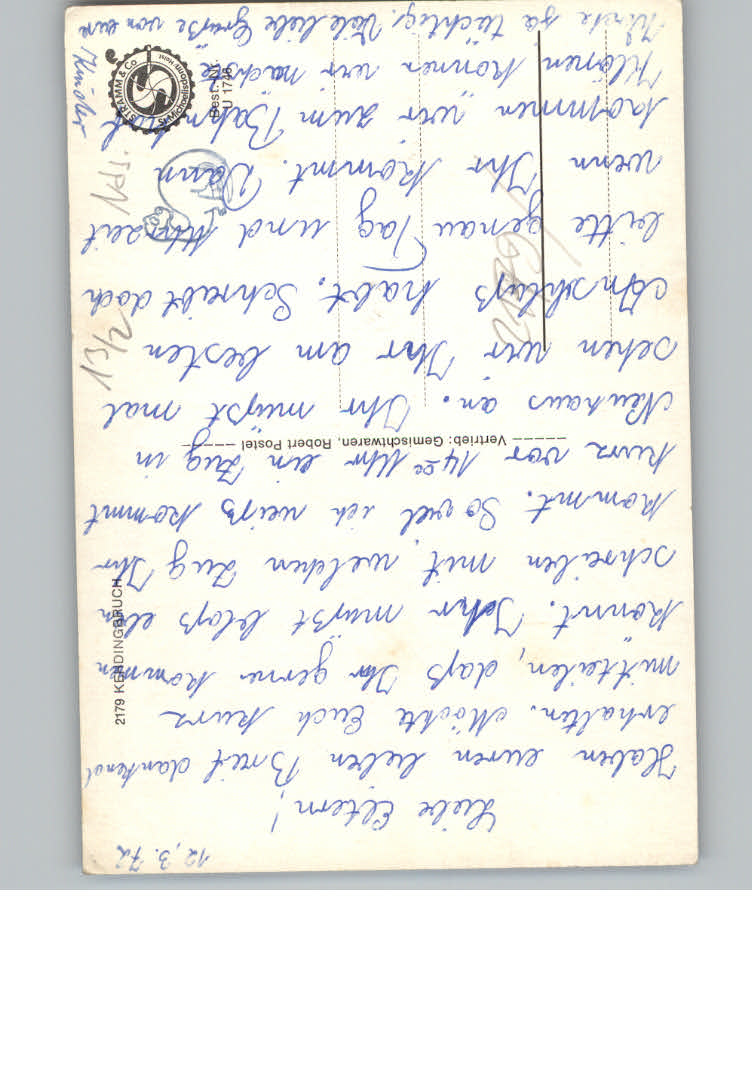 12.3.72
Liebe Eltern!
Haben euren lieben Brief dankend
erhalten. Möchte Euch kurz
mitteilen, daß Ihr gerne kommen
könnt. Ihr müßt bloß eben
schreiben mit welchen Zug Ihr
kommt. Soviel ich weiß kommt
kurz vor 14⁰⁰ Uhr ein Zug in
Neuhaus an. Ihr müßt mal
sehen wir Ihr am besten
Anschluß habt. Schreibt doch
bitte genau Tag und Uhrzeit
wenn Ihr kommt. Dann
kommen wir zum Bahnhof
Klönen können wir nächste
Woche ja tüchtig. Viele liebe Grüße von eure
Kinder
2179 KEHDINGBRUCH
Vertrieb: Gemischtwaren, Robert Postel
13/2
STRAMM & Co
St. Michaelisdonn
Best. Nr.
U 1746